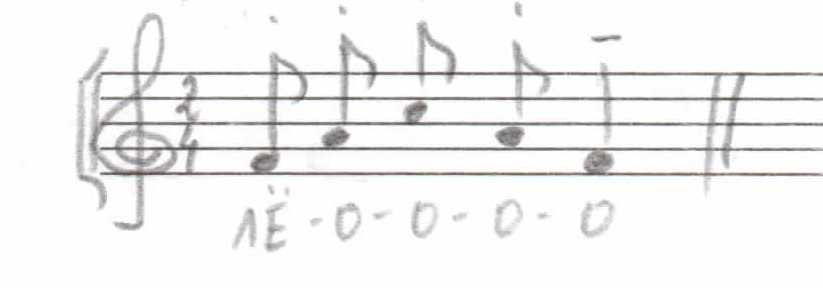 2
4
лЁ - О - О - О - О